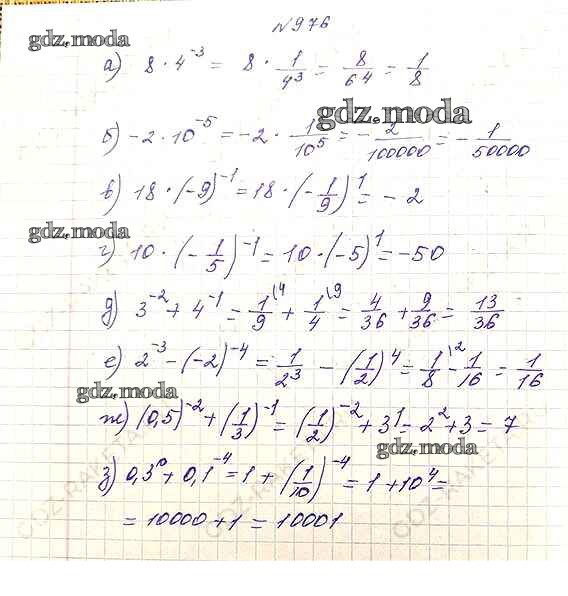 №976
gdz.moda
а) 8 · 4⁻³ = 8 · 1/4³ = 8/64 = 1/8
gdz.moda
б) -2 · 10⁻⁵ = -2 · 1/10⁵ = -2/100000 = -1/50000
в) 18 · (-9)⁻¹ = 18 · (-1/9)¹ = -2
gdz.moda
г) 10 · (-1/5)⁻¹ = 10 · (-5)¹ = -50
д) 3⁻² + 4⁻¹ = 1/9 \4 + 1/4 \9 = 4/36 + 9/36 = 13/36
е) 2⁻³ - (-2)⁻⁴ = 1/2³ - (1/2)⁴ = 1/8 \2 - 1/16 = 1/16
gdz.moda
ж) (0,5)⁻² + (1/3)⁻¹ = (1/2)⁻² + 3¹ = 2² + 3 = 7
gdz.moda
з) 0,3⁰ + 0,1⁻⁴ = 1 + (1/10)⁻⁴ = 1 + 10⁴ =
= 10000 + 1 = 10001